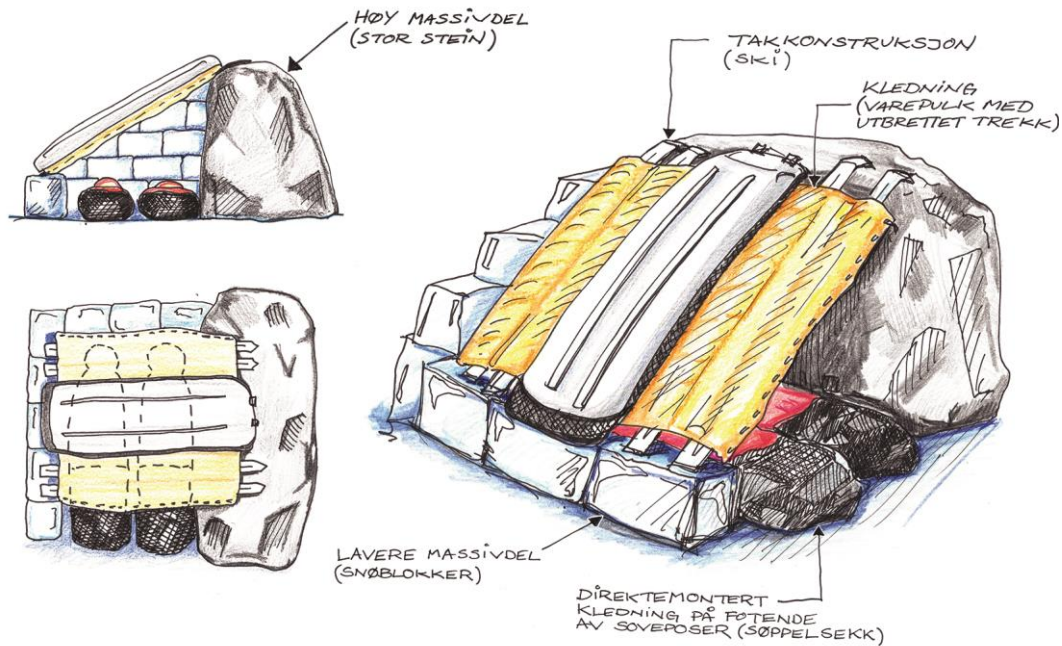 HØY MASSIVDEL
(STOR STEIN)
TAKKONSTRUKSJON
(SKI)
KLEDNING
(VAREPULK MED
UTBRETTET TREKK)
LAVERE MASSIVDEL
(SNØBLOKKER)
DIREKTEMONTERT
KLEDNING PÅ FOTENDE
AV SOVEPOSER (SØPPELSEKK)